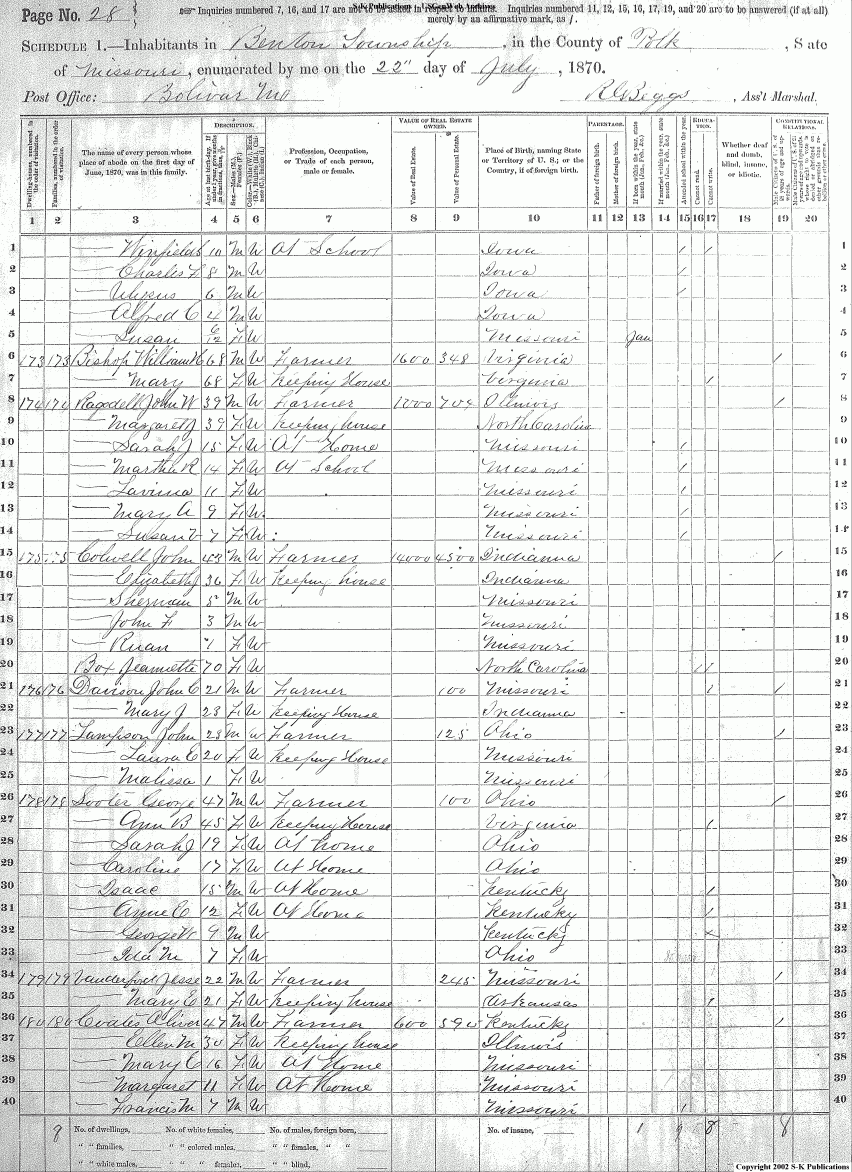 Page No. 28
Inquiries numbered 7, 16, and 17 are not to be asked in respect to infants. Inquiries numbered 11, 12, 15, 16, 17, 19, and 20 are to be answered (if at all)
merely by an affirmative mark, as /.
S-K Publications - USGenWeb Archives
SCHEDULE 1.—Inhabitants in Benton Township, in the County of Polk, State
of Missouri, enumerated by me on the 22" day of July, 1870.
Post Office: Bolivar Mo R G Beggs, Ass't Marshal.
Dwelling-houses, numbered in the order of visitation.
Families, numbered in the order of visitation.
The name of every person whose place of abode on the first day of June, 1870, was in this family.
DESCRIPTION.
Profession, Occupation, or Trade of each person, male or female.
VALUE OF REAL ESTATE OWNED.
Value of Real Estate.
Value of Personal Estate.
Place of Birth, naming State or Territory of U. S.; or the Country, if of foreign birth.
PARENTAGE.
Father of foreign birth.
Mother of foreign birth.
EDUCATION.
Attended school within the year.
Cannot read.
Cannot write.
Whether deaf and dumb, blind, insane, or idiotic.
CONSTITUTIONAL RELATIONS.
1 2 3 4 5 6 7 8 9 10 11 12 13 14 15 16 17 18 19 20
1 — Winfield S 10 M W At School Iowa / / 1
2 — Charles F 8 M W Iowa / 2
3 — Ulysus 6 M W Iowa / 3
4 — Alfred C 4 M W Iowa 4
5 — Susan 6/12 F W Missouri Jan 5
6 173 173 Bishop William H 68 M W Farmer 1600 348 Virginia / 6
7 — Mary 68 F W Keeping House Virginia / 7
8 174 174 Ragsdell John W 39 M W Farmer 1000 704 Illinois / 8
9 — Margaret J 39 F W Keeping house North Carolina 9
10 — Sarah J 15 F W At Home Missouri / 10
11 — Martha R 14 F W At School Missouri / 11
12 — Lavinia 11 F W Missouri / 12
13 — Mary A 9 F W Missouri 13
14 — Susan V 7 F W Missouri / 14
15 175 175 Colwell John 43 M W Farmer 14000 4500 Indianna / 15
16 — Elizabeth J 36 F W Keeping house Indianna 16
17 — Sherman 5 M W Missouri 17
18 — John F 3 M W Missouri 18
19 — Ruan 1 F W Missouri 19
20 Box Jeannette 70 F W North Carolina / / 20
21 176 176 Davison John C 21 M W Farmer 100 Missouri / / 21
22 — Mary J 23 F W Keeping House Indianna 22
23 177 177 Lampson John 23 M W Farmer 125 Ohio / 23
24 — Laura E 20 F W Keeping House Missouri 24
25 — Malissa 1 F W Missouri 25
26 178 178 Sooter George 47 M W Farmer 100 Ohio / 26
27 — Ann B 45 F W Keeping House Virginia / 27
28 — Sarah J 19 F W At home Ohio 28
29 — Caroline 17 F W At Home Ohio 29
30 — Isaac 15 M W At Home Kentucky / 30
31 — Anne E 12 F W At Home Kentucky / 31
32 — George W 9 M W Kentucky / 32
33 — Ida M 7 F W Ohio 33
34 179 179 Vanderford Jesse 22 M W Farmer 245 Missouri / 34
35 — Mary E 21 F W Keeping house Arkansas / 35
36 180 180 Coates Oliver 47 M W Farmer 600 590 Kentucky / 36
37 — Ellen M 30 F W Keeping house Illinois 37
38 — Mary E 16 F W At Home Missouri 38
39 — Margaret 11 F W At Home Missouri 39
40 — Francis M 7 M W Missouri / 40
8 No. of dwellings, No. of white females, No. of males, foreign born, No. of insane, 1 9 8 8
" " families, " " colored males, " " females, " "
" " white males, " " " females, " " blind,
Copyright 2002 S-K Publications